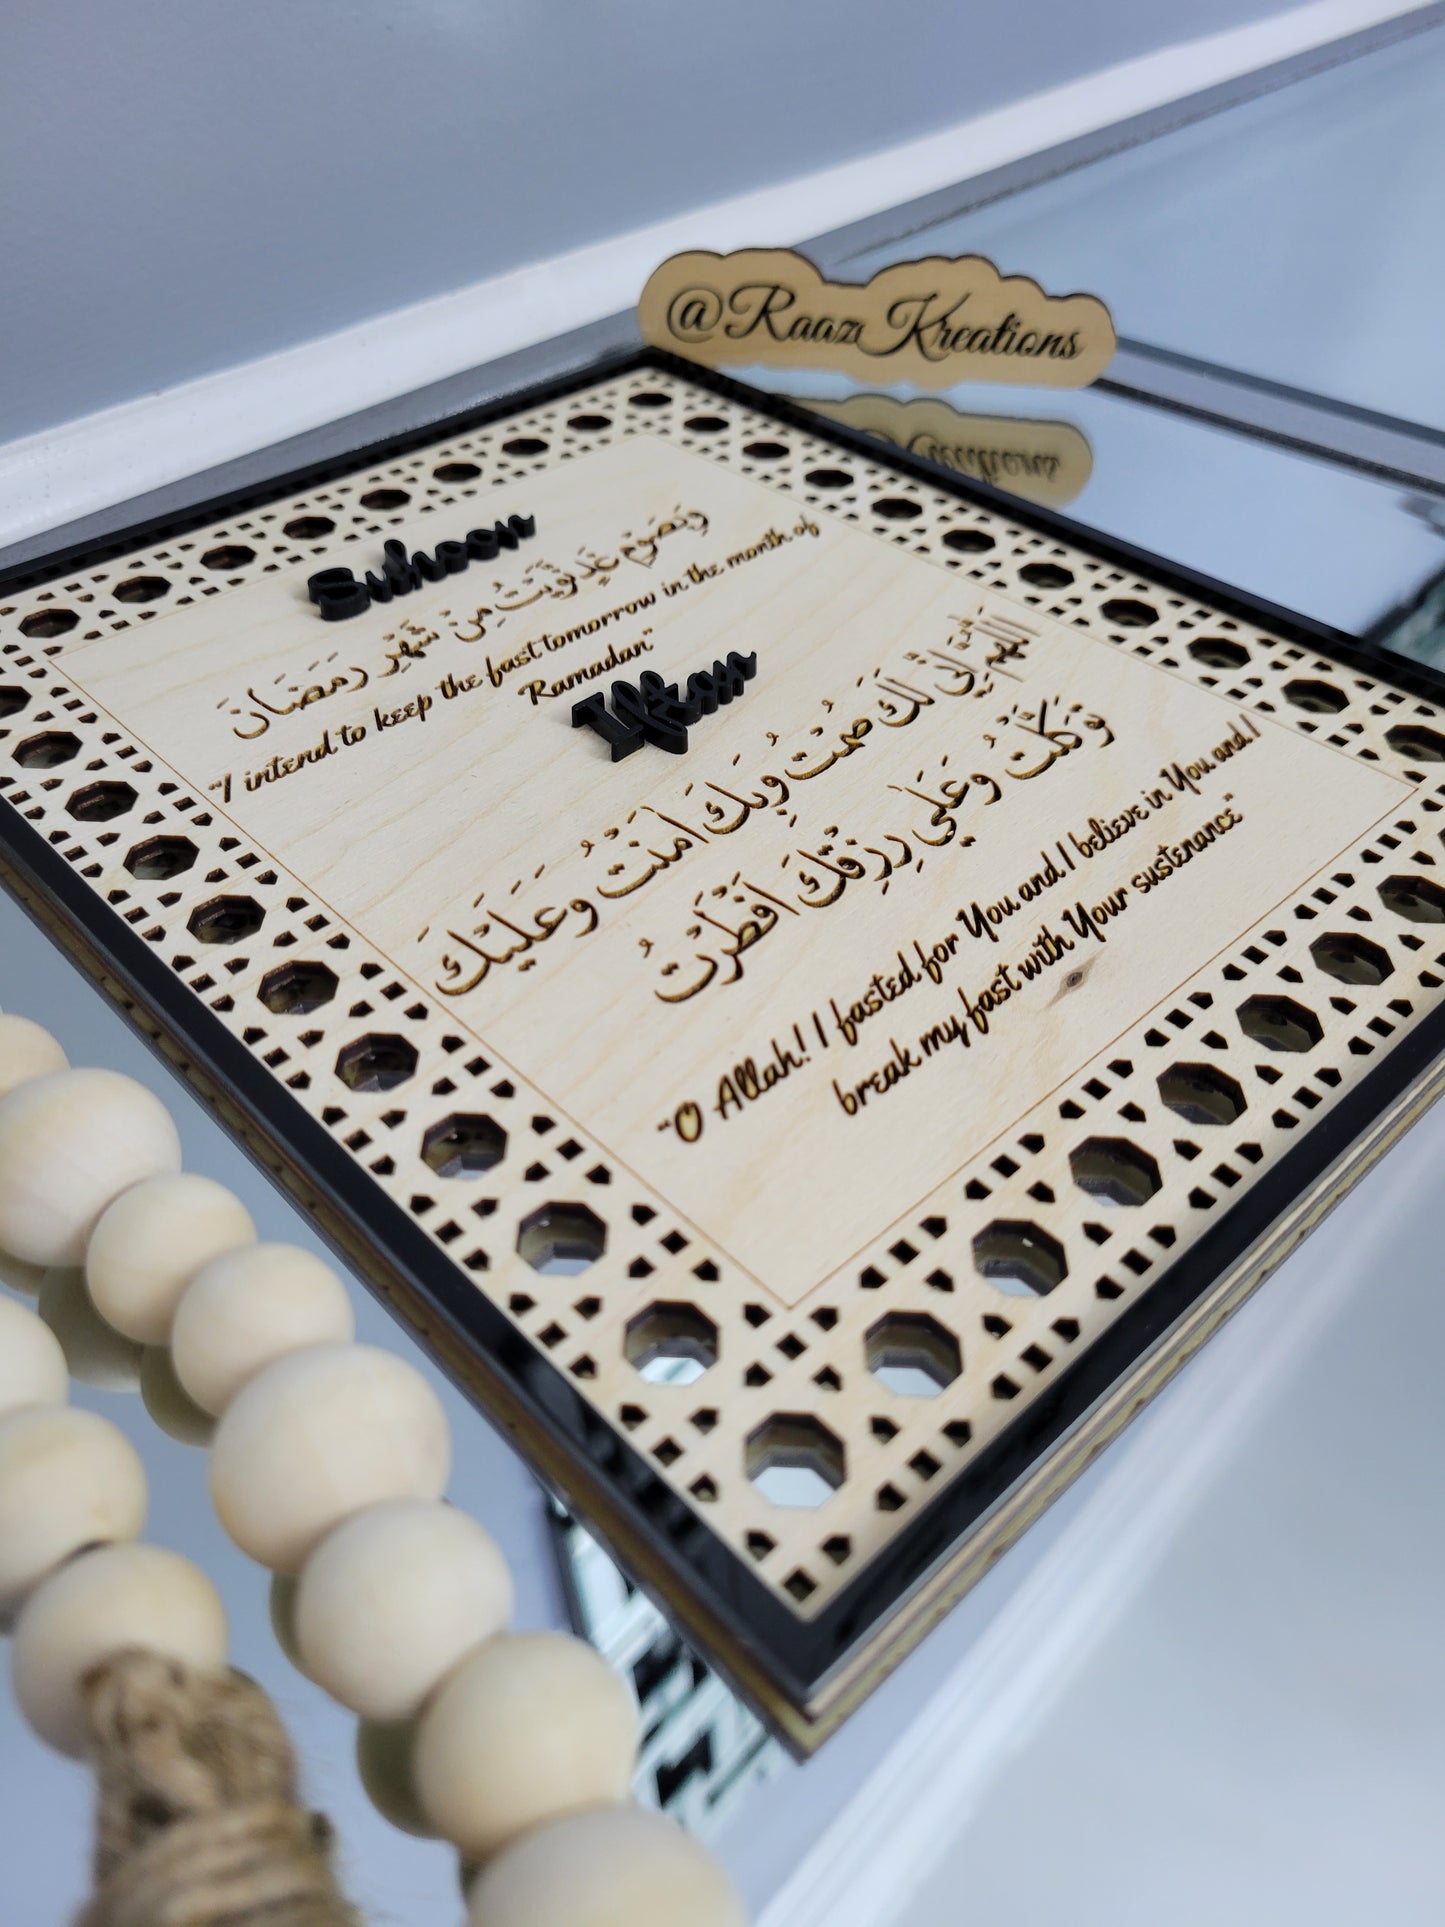 @Raazi Kreations
Suhoor
وَبِصَوْمِ غَدٍ نَّوَيْتُ مِنْ شَهْرِ رَمَضَانَ
"I intend to keep the fast tomorrow in the month of
Ramadan"
Iftar
اَللّٰهُمَّ اِنِّي لَكَ صُمْتُ وَبِكَ اٰمَنْتُ وَعَلَيْكَ
تَوَكَّلْتُ وَعَلٰي رِزْقِكَ اَفْطَرْتُ
"O Allah! I fasted for You and I believe in You and I
break my fast with Your sustenance"